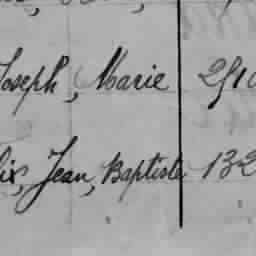 Joseph, Marie 2910
lix, Jean, Baptiste 132